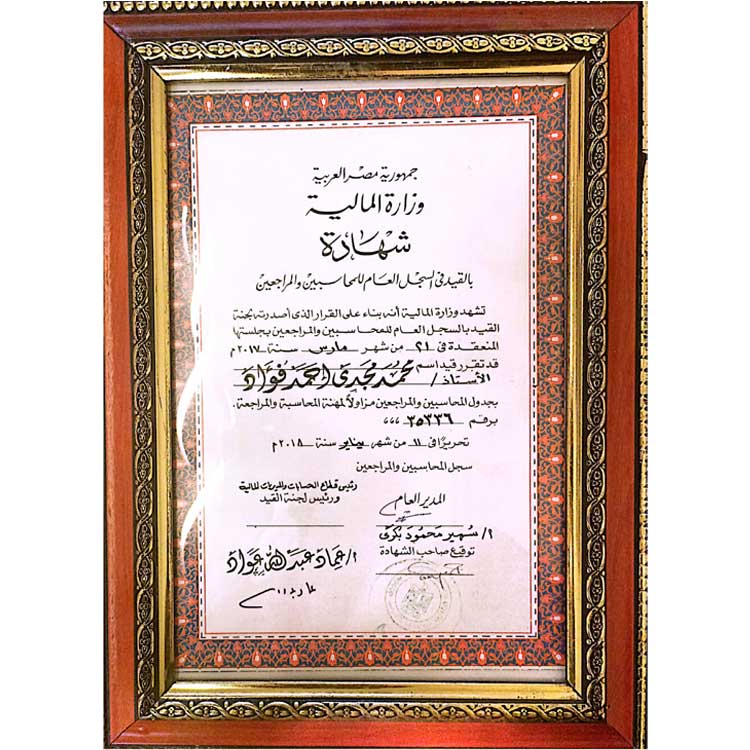 جمهورية مصر العربية
وزارة المالية
شهادة
بالقيد فى السجل العام للمحاسبين والمراجعين
تشهد وزارة المالية أنه بناء على القرار الذى أصدرته لجنة
القيد بالسجل العام للمحاسبين والمراجعين بجلستها
المنعقدة فى ٢١ من شهر مارس سنة ٢٠١٧م
قد تقرر قيد اسم
الأستاذ/ محمد مجدى احمد فؤاد
بجدول المحاسبين والمراجعين مزاولاً لمهنة المحاسبة والمراجعة.
برقم ٣٥٣٣٦ ،،،
تحريرًا فى ١١ من شهر يناير سنة ٢٠١٨م
سجل المحاسبين والمراجعين
المدير العام
أ/ سمير محمود بكرى
توقيع صاحب الشهادة
رئيس قطاع الحسابات والمديريات المالية
ورئيس لجنة القيد
أ/ عماد عبد الله عواد